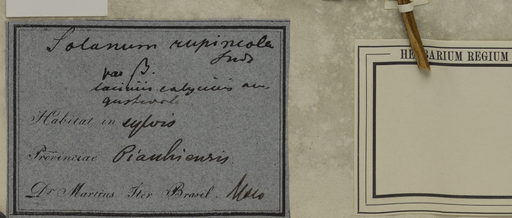 Solanum rupincola
Sndt
var β.
laciniis calycinis an
gustioribs
Habitat in sylvis
Provinciae Piauhiensis
Dr Martius Iter Brasil. Majo
HERBARIUM REGIUM